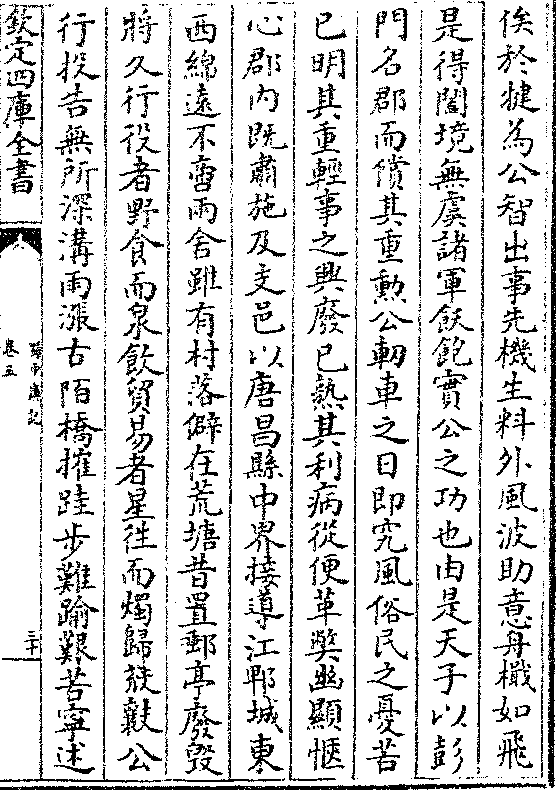 俟於犍為公智出事先機生料外風波助意舟檝如飛
是得闔境無虞諸軍飫飽實公之功也由是天子以彭
門名郡而償其重勲公軔車之日即究風俗民之憂苦
已明其重輕事之興廢已熟其利病從便革弊幽顯愜
心郡内既肅施及支邑以唐昌縣中界接導江郫城東
西綿遠不啻兩舍雖有村落僻在荒塘昔置郵亭廢毁
將久行役者野食而泉飲貿易者星徃而燭歸簇歎公
行投告無所深溝雨漲古陌橋摧跬步難踰艱苦寧述
欽定四庫全書
卷五
三十